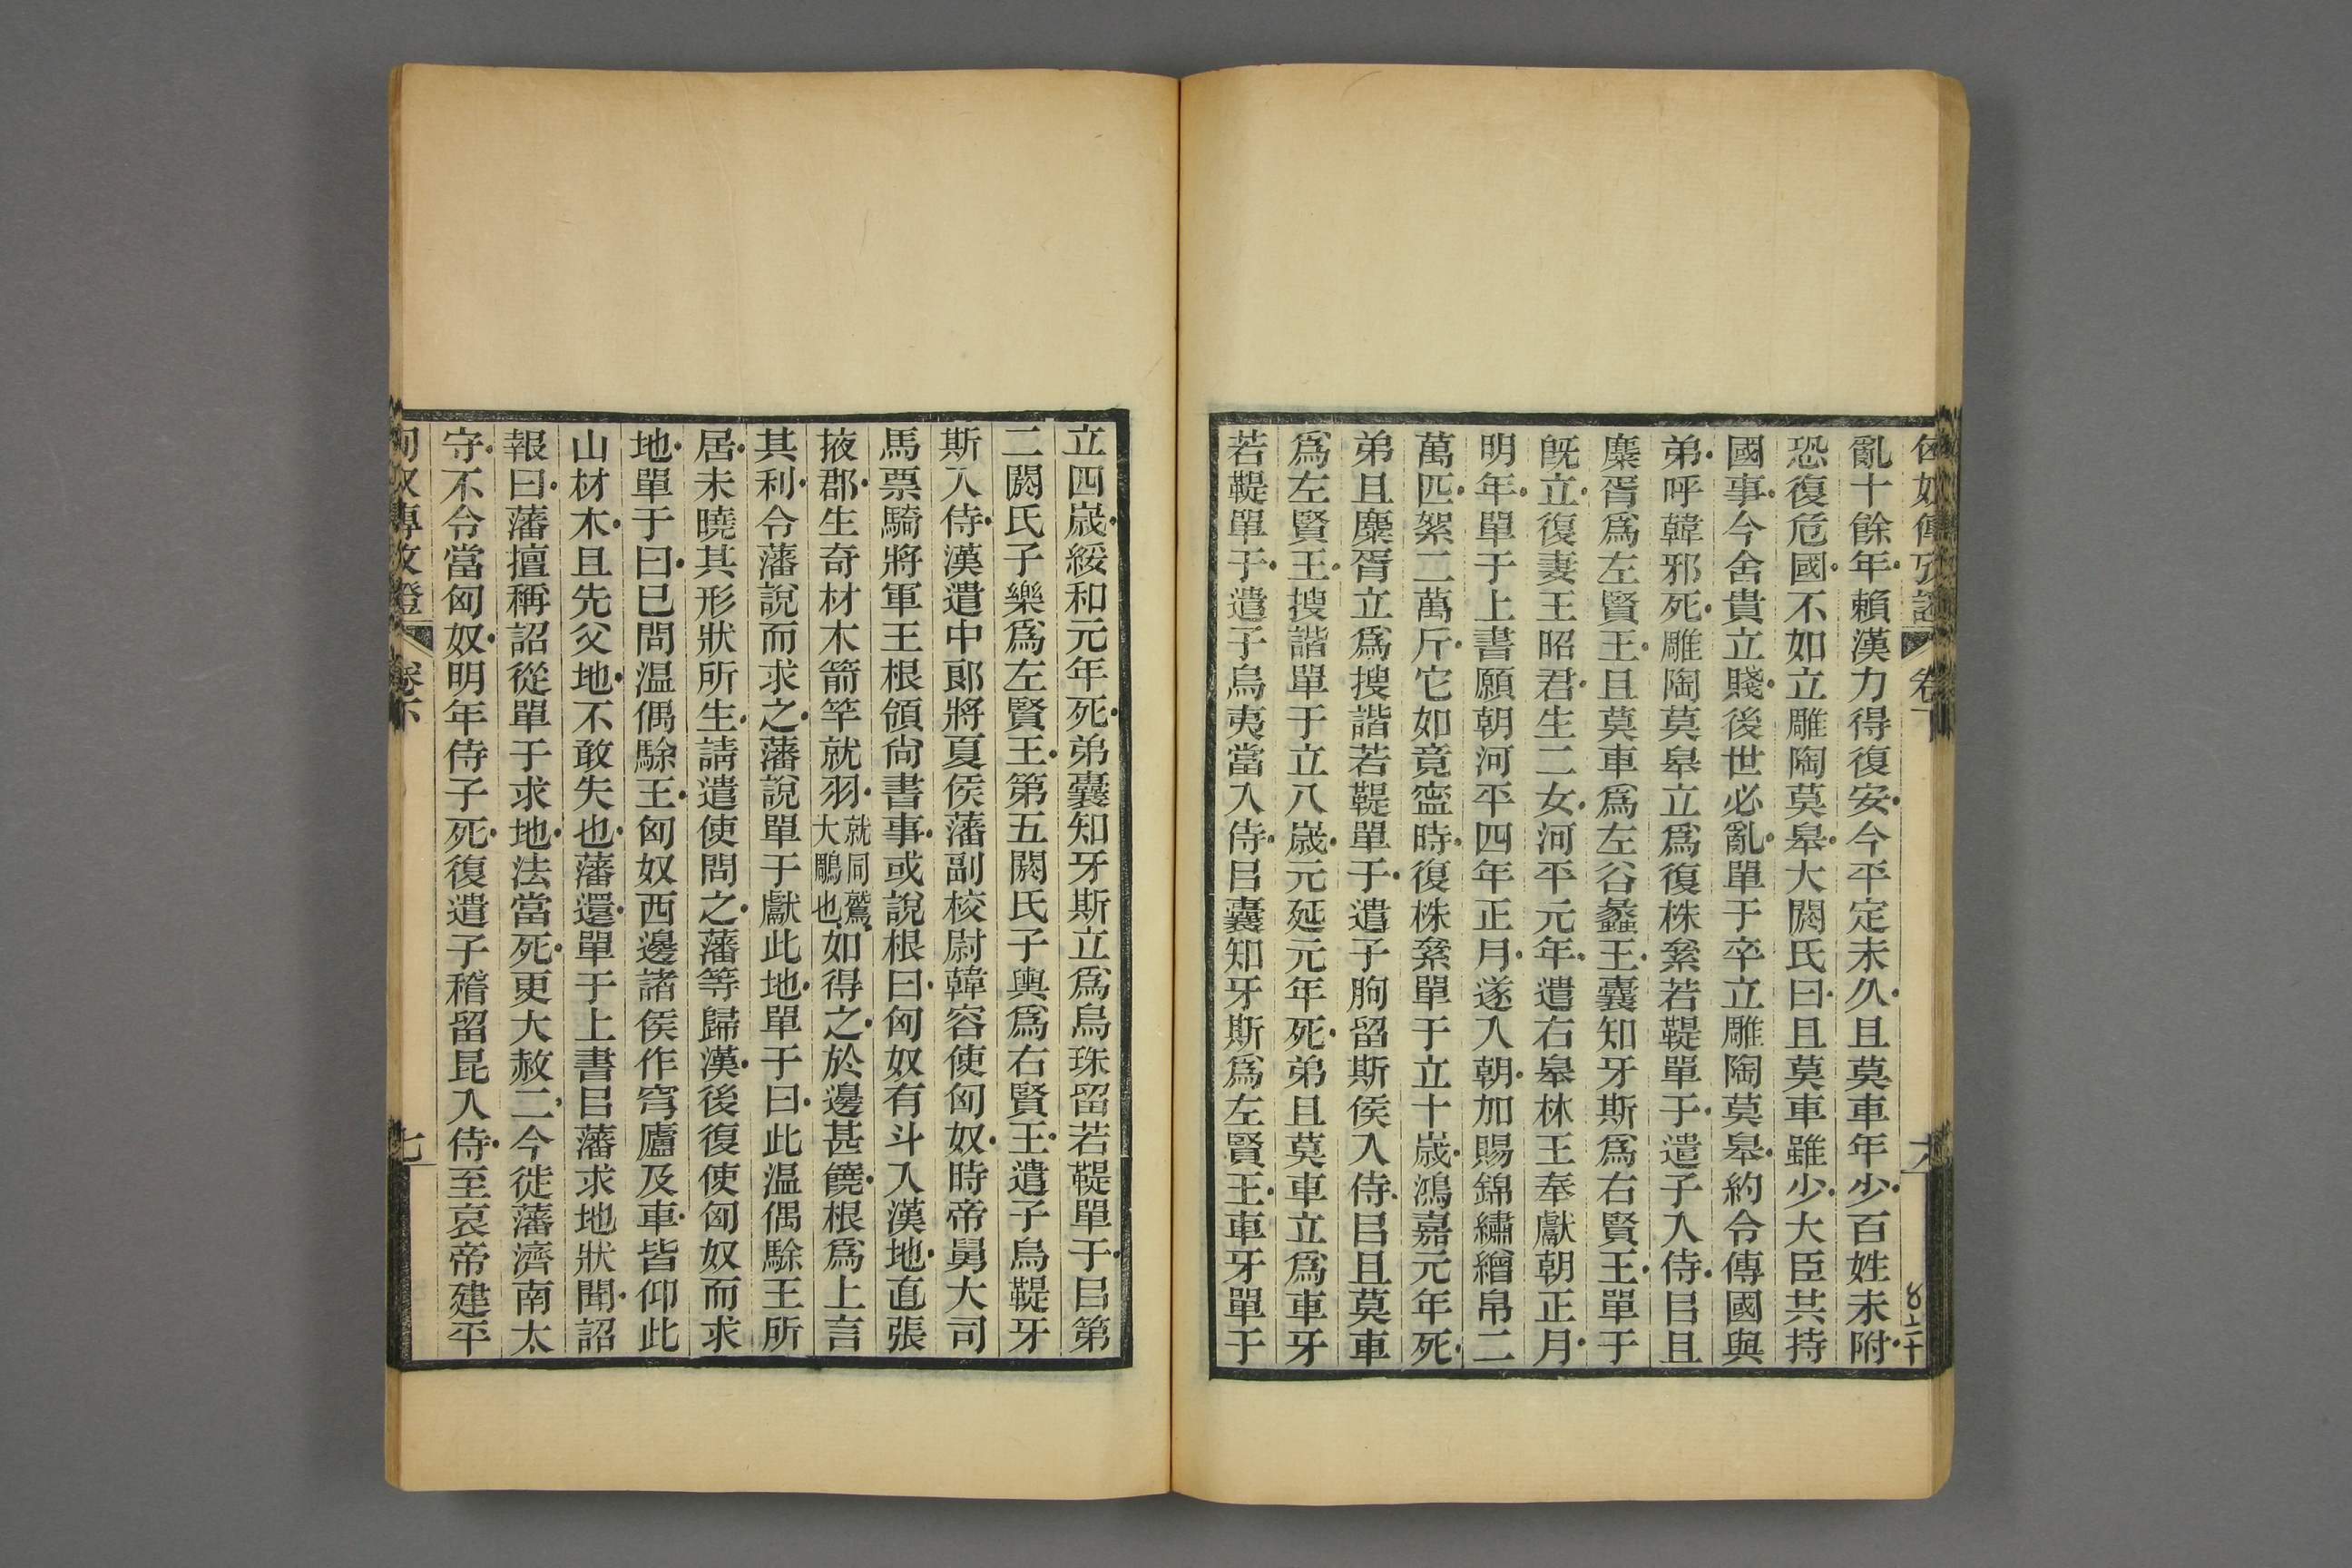 匈奴傳攷證 卷下 六
亂十餘年賴漢力得復安今平定未久且莫車年少百姓未附
恐復危國不如立雕陶莫皋大閼氏曰且莫車雖少大臣共持
國事今舍貴立賤後世必亂單于卒立雕陶莫皋約令傳國與
弟呼韓邪死雕陶莫皋立爲復株絫若鞮單于遣子入侍㠯且
麋胥爲左賢王且莫車爲左谷蠡王囊知牙斯爲右賢王單于
旣立復妻王昭君生二女河平元年遣右皋林王奉獻朝正月
明年單于上書願朝河平四年正月遂入朝加賜錦繡繒帛二
萬匹絮二萬斤它如竟寍時復株絫單于立十歲鴻嘉元年死
弟且麋胥立爲搜諧若鞮單于遣子朐留斯侯入侍㠯且莫車
爲左賢王搜諧單于立八歲元延元年死弟且莫車立爲車牙
若鞮單于遣子烏夷當入侍㠯囊知牙斯爲左賢王車牙單于
立四歲綏和元年死弟囊知牙斯立爲烏珠留若鞮單于㠯第
二閼氏子樂爲左賢王第五閼氏子輿爲右賢王遣子烏鞮牙
斯入侍漢遣中郎將夏侯藩副校尉韓容使匈奴時帝舅大司
馬票騎將軍王根領尙書事或說根曰匈奴有斗入漢地直張
掖郡生奇材木箭竿就羽就同鷲大鵰也如得之於邊甚饒根爲上言
其利令藩說而求之藩說單于獻此地單于曰此温偶駼王所
居未曉其形狀所生請遣使問之藩等歸漢後復使匈奴而求
地單于曰已問温偶駼王匈奴西邊諸侯作穹廬及車皆仰此
山材木且先父地不敢失也藩還單于上書㠯藩求地狀聞詔
報曰藩擅稱詔從單于求地法當死更大赦二今徙藩濟南太
守不令當匈奴明年侍子死復遣子稽留昆入侍至哀帝建平
匈奴傳攷證 卷下 七